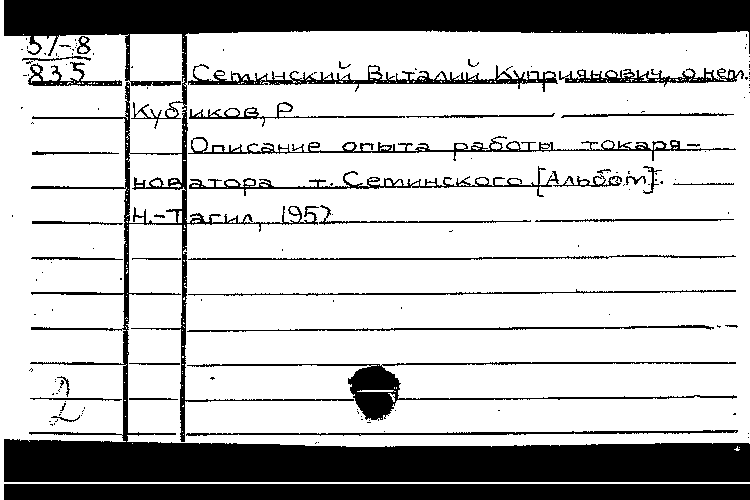 57-8
835
Сетинский, Виталий Куприянович, о нем.
Кубиков, Р
Описание опыта работы токаря-
новатора т. Сетинского. [Альбом].
Н.-Тагил, 1957
2